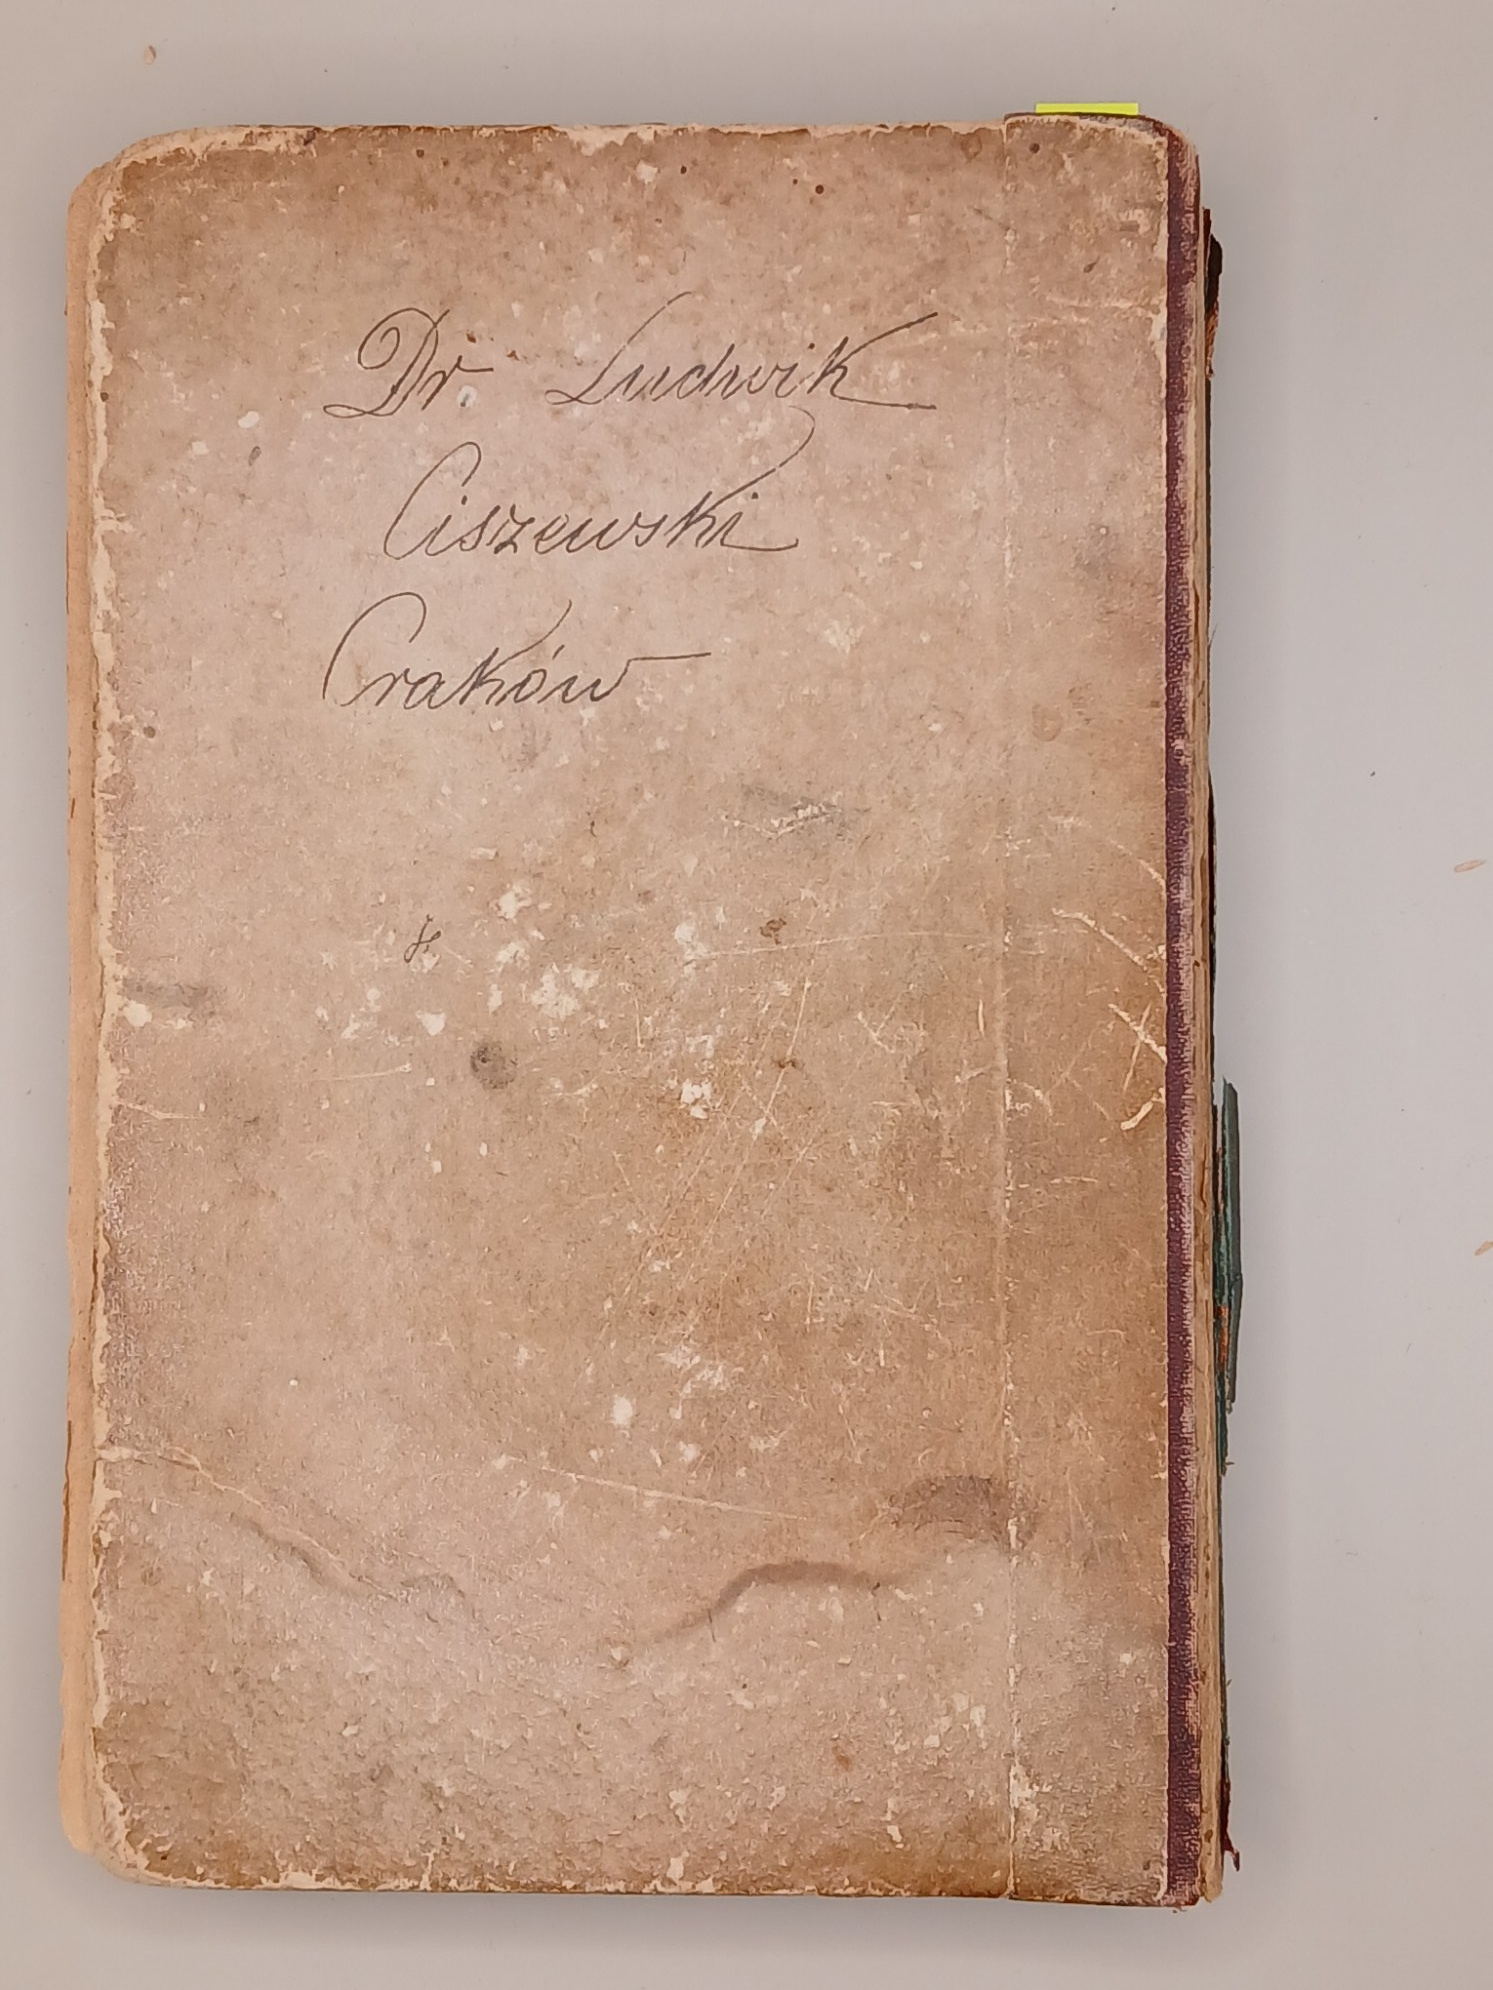 Dr Ludwik
Ciszewski
Craków